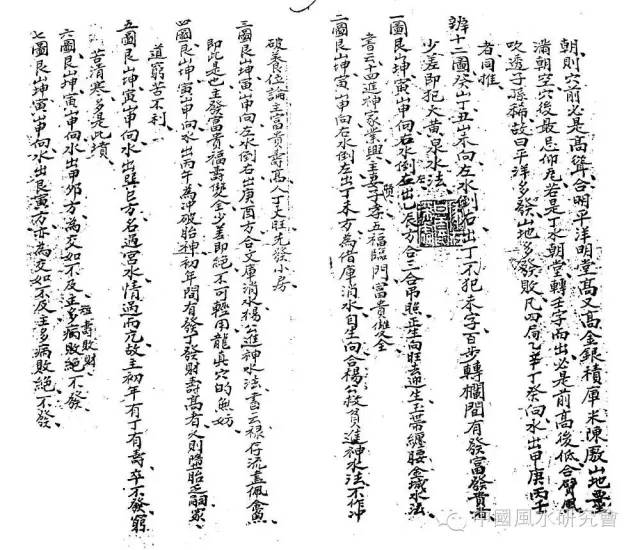 朝則穴前必是高聳合明平洋明堂高又高金銀積庫米陳廒山地墨
滿朝空穴後最忌仰瓦若是丁水朝堂轉壬字而出必是前高後低合臂風
吹透子孫稀故曰平洋多發山地多發敗凡四局乙辛丁癸向水出甲庚丙壬
者同推
辨十二圖癸山丁丑山未向左水倒右出丁不犯未字百步轉欄間有發富發貴者
少差即犯大黃泉水法
一圖艮山坤寅山申向右水倒左出乙辰方合三合吊照正生向旺去迎生玉帶纏腰金城水法
書云十四進神家業興主妻賢子孝五福臨門富貴雙全
二圖艮山坤寅山申向右水倒左出丁未方為借庫消水自生向合楊公救貧進神水法不作冲
破養位論主富貴壽高人丁大旺先發小房
三圖艮山坤寅山申向左水倒右出庚酉方合文庫消水楊公進神水法書云祿存流盡佩金魚
即此是也主發富貴福壽雙全少差即絕不可輕用龍真穴的無妨
四圖艮山坤寅山申向水出丙午為冲破胎神初年間有發丁發財壽高者久則墮胎乏嗣家
道窮苦不利
五圖艮山坤寅山申向水出巽巳方名過宮水情過而亢故主初年有丁有壽卒不發窮
苦清寒多是此墳
六圖艮山坤寅山申向水出甲卯方為交如不及主多病短壽敗財敗絕不發
七圖艮山坤寅山申向水出艮寅方亦為交如不及主多病敗絕不發
中國風水研究會